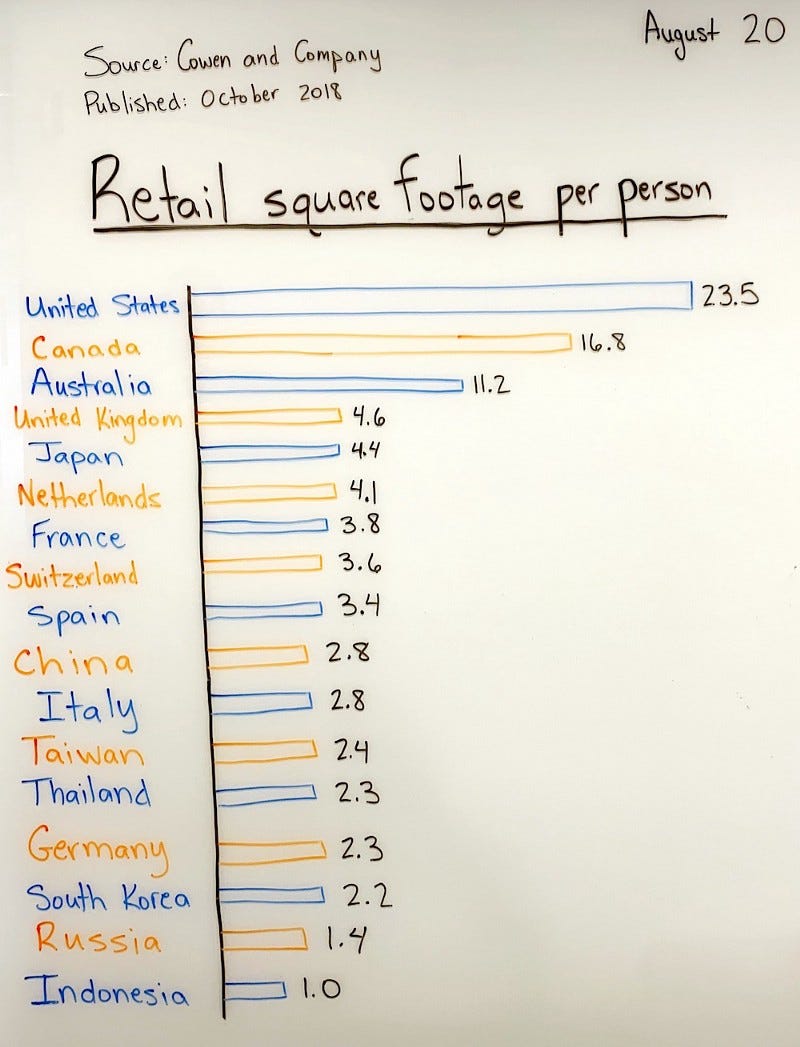 August 20
Source: Cowen and Company
Published: October 2018
Retail square footage per person
United States 23.5
Canada 16.8
Australia 11.2
United Kingdom 4.6
Japan 4.4
Netherlands 4.1
France 3.8
Switzerland 3.6
Spain 3.4
China 2.8
Italy 2.8
Taiwan 2.4
Thailand 2.3
Germany 2.3
South Korea 2.2
Russia 1.4
Indonesia 1.0